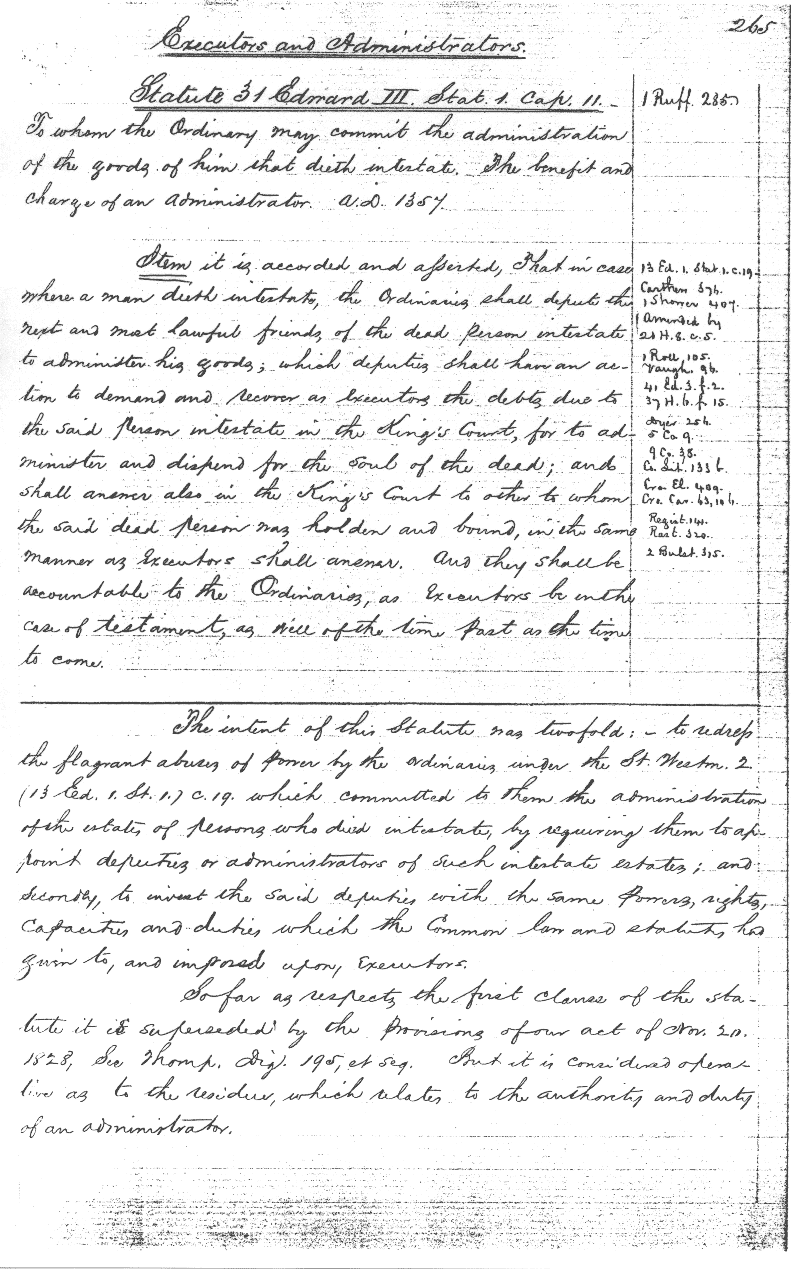 265
Executors and Administrators.
Statute 31 Edward III. Stat. 1. Cap. 11. -
1 Ruff. 285.
To whom the Ordinary may commit the administration
of the goods of him that dieth intestate. The benefit and
charge of an administrator. A.D. 1357.
Item it is accorded and assented, That in case
where a man dieth intestate, the Ordinaries shall depute the
next and most lawful friends of the dead person intestate
to administer his goods; which deputies shall have an ac-
tion to demand and recover as executors the debts due to
the said person intestate in the King's Court, for to ad-
minister and dispend for the soul of the dead; and
shall answer also in the King's Court to other to whom
the said dead person was holden and bound, in the same
manner as Executors shall answer. And they shall be
accountable to the Ordinaries, as Executors be in the
case of testament, as well of the time past as the time
to come.
13 Ed. 1. Stat. 1. c. 19-
Carthew 376.
1 Shower 407.
Amended by
21 H. 8. c. 5.
1 Roll, 105.
Vaugh. 96.
41 Ed. 3. f. 2.
37 H. 6. f. 15.
Dyer 256.
5 Co. 9.
9 Co. 38.
Co. Lit. 133 b.
Cro. El. 409.
Cro. Car. 63, 106.
Regist. 141.
Rast. 320.
2 Bulst. 315.
The intent of this Statute was twofold: - to redress
the flagrant abuses of power by the ordinaries under the St. Westm. 2
(13 Ed. 1. St. 1.) c. 19. which committed to them the administration
of the estates of persons who died intestate, by requiring them to ap-
point deputies or administrators of such intestate estates; and
secondly, to invest the said deputies with the same powers, rights,
capacities and duties which the Common law and statutes had
given to, and imposed upon, Executors.
So far as respects the first clause of the sta-
tute it is superseded by the provisions of our act of Nov. 20.
1828, See Thomp. Dig. 195, et seq. But it is considered opera-
tive as to the residue, which relates to the authority and duty
of an administrator.